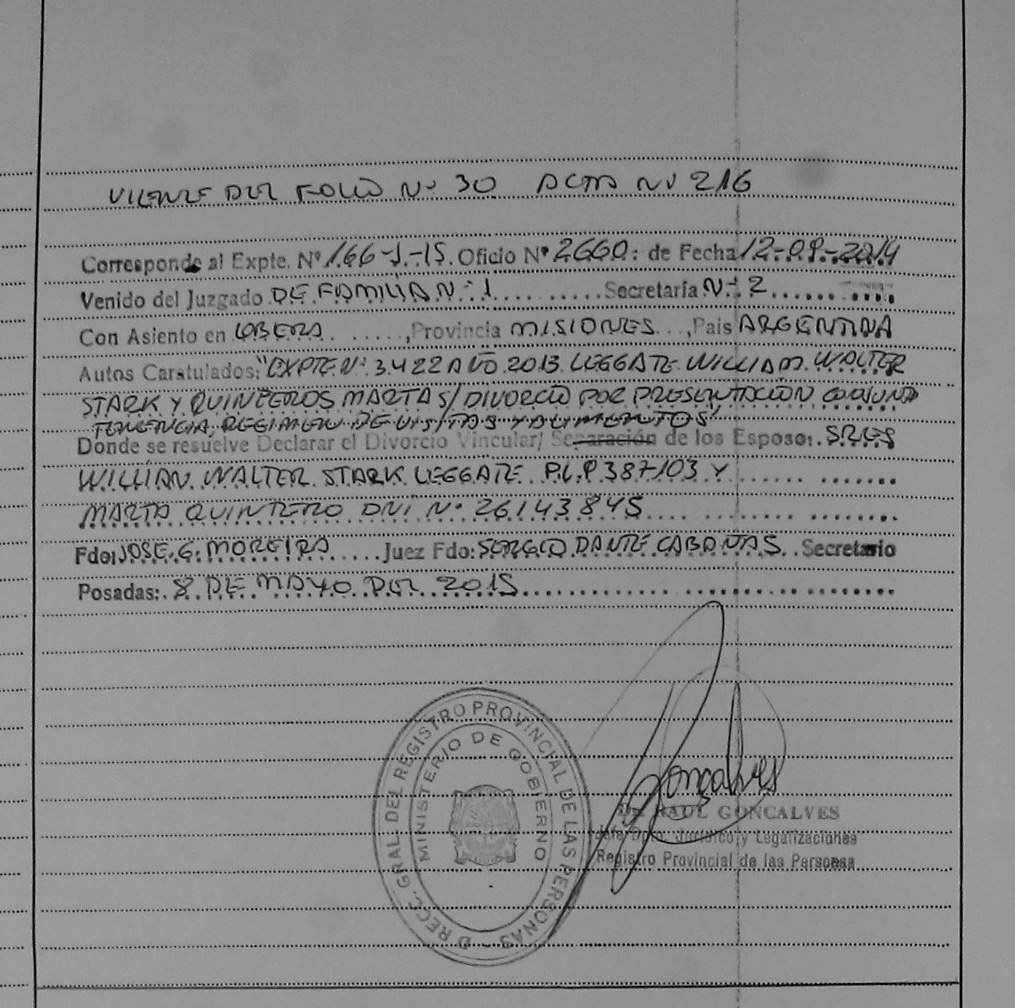 VIENE DEL FOLIO Nº 30 ACTA Nº 216
Corresponde al Expte. Nº 166-J-15. Oficio Nº 2660: de Fecha 12-09-2014
Venido del Juzgado DE FAMILIA Nº 1 Secretaría Nº 2
Con Asiento en OBERA, Provincia MISIONES, Pais ARGENTINA
Autos Caratulados: "EXPTE Nº 3422 AÑO 2013 LEGGATE WILLIAM WALTER
STARK Y QUINTEROS MARTA S/ DIVORCIO POR PRESENTACION CONJUNTA
TENENCIA, REGIMEN DE VISITAS Y ALIMENTOS"
Donde se resuelve Declarar el Divorcio Vincular/ Separación de los Esposo: SRES
WILLIAN WALTER STARK LEGGATE P.L.P 387103 Y
MARTA QUINTERO DNI Nº 26143845
Fdo: JOSE G. MOREIRA Juez Fdo: SERGIO DANTE CABAÑAS Secretario
Posadas: 8 DE MAYO DEL 2015
D RECC. GRAL DEL REGISTRO PROVINCIAL DE LAS PERSONAS
MINISTERIO DE GOBIERNO
Gonçalves
Dr. RAUL GONCALVES
Jefe Dpto. Jurídico y Legalizaciones
Registro Provincial de las Personas